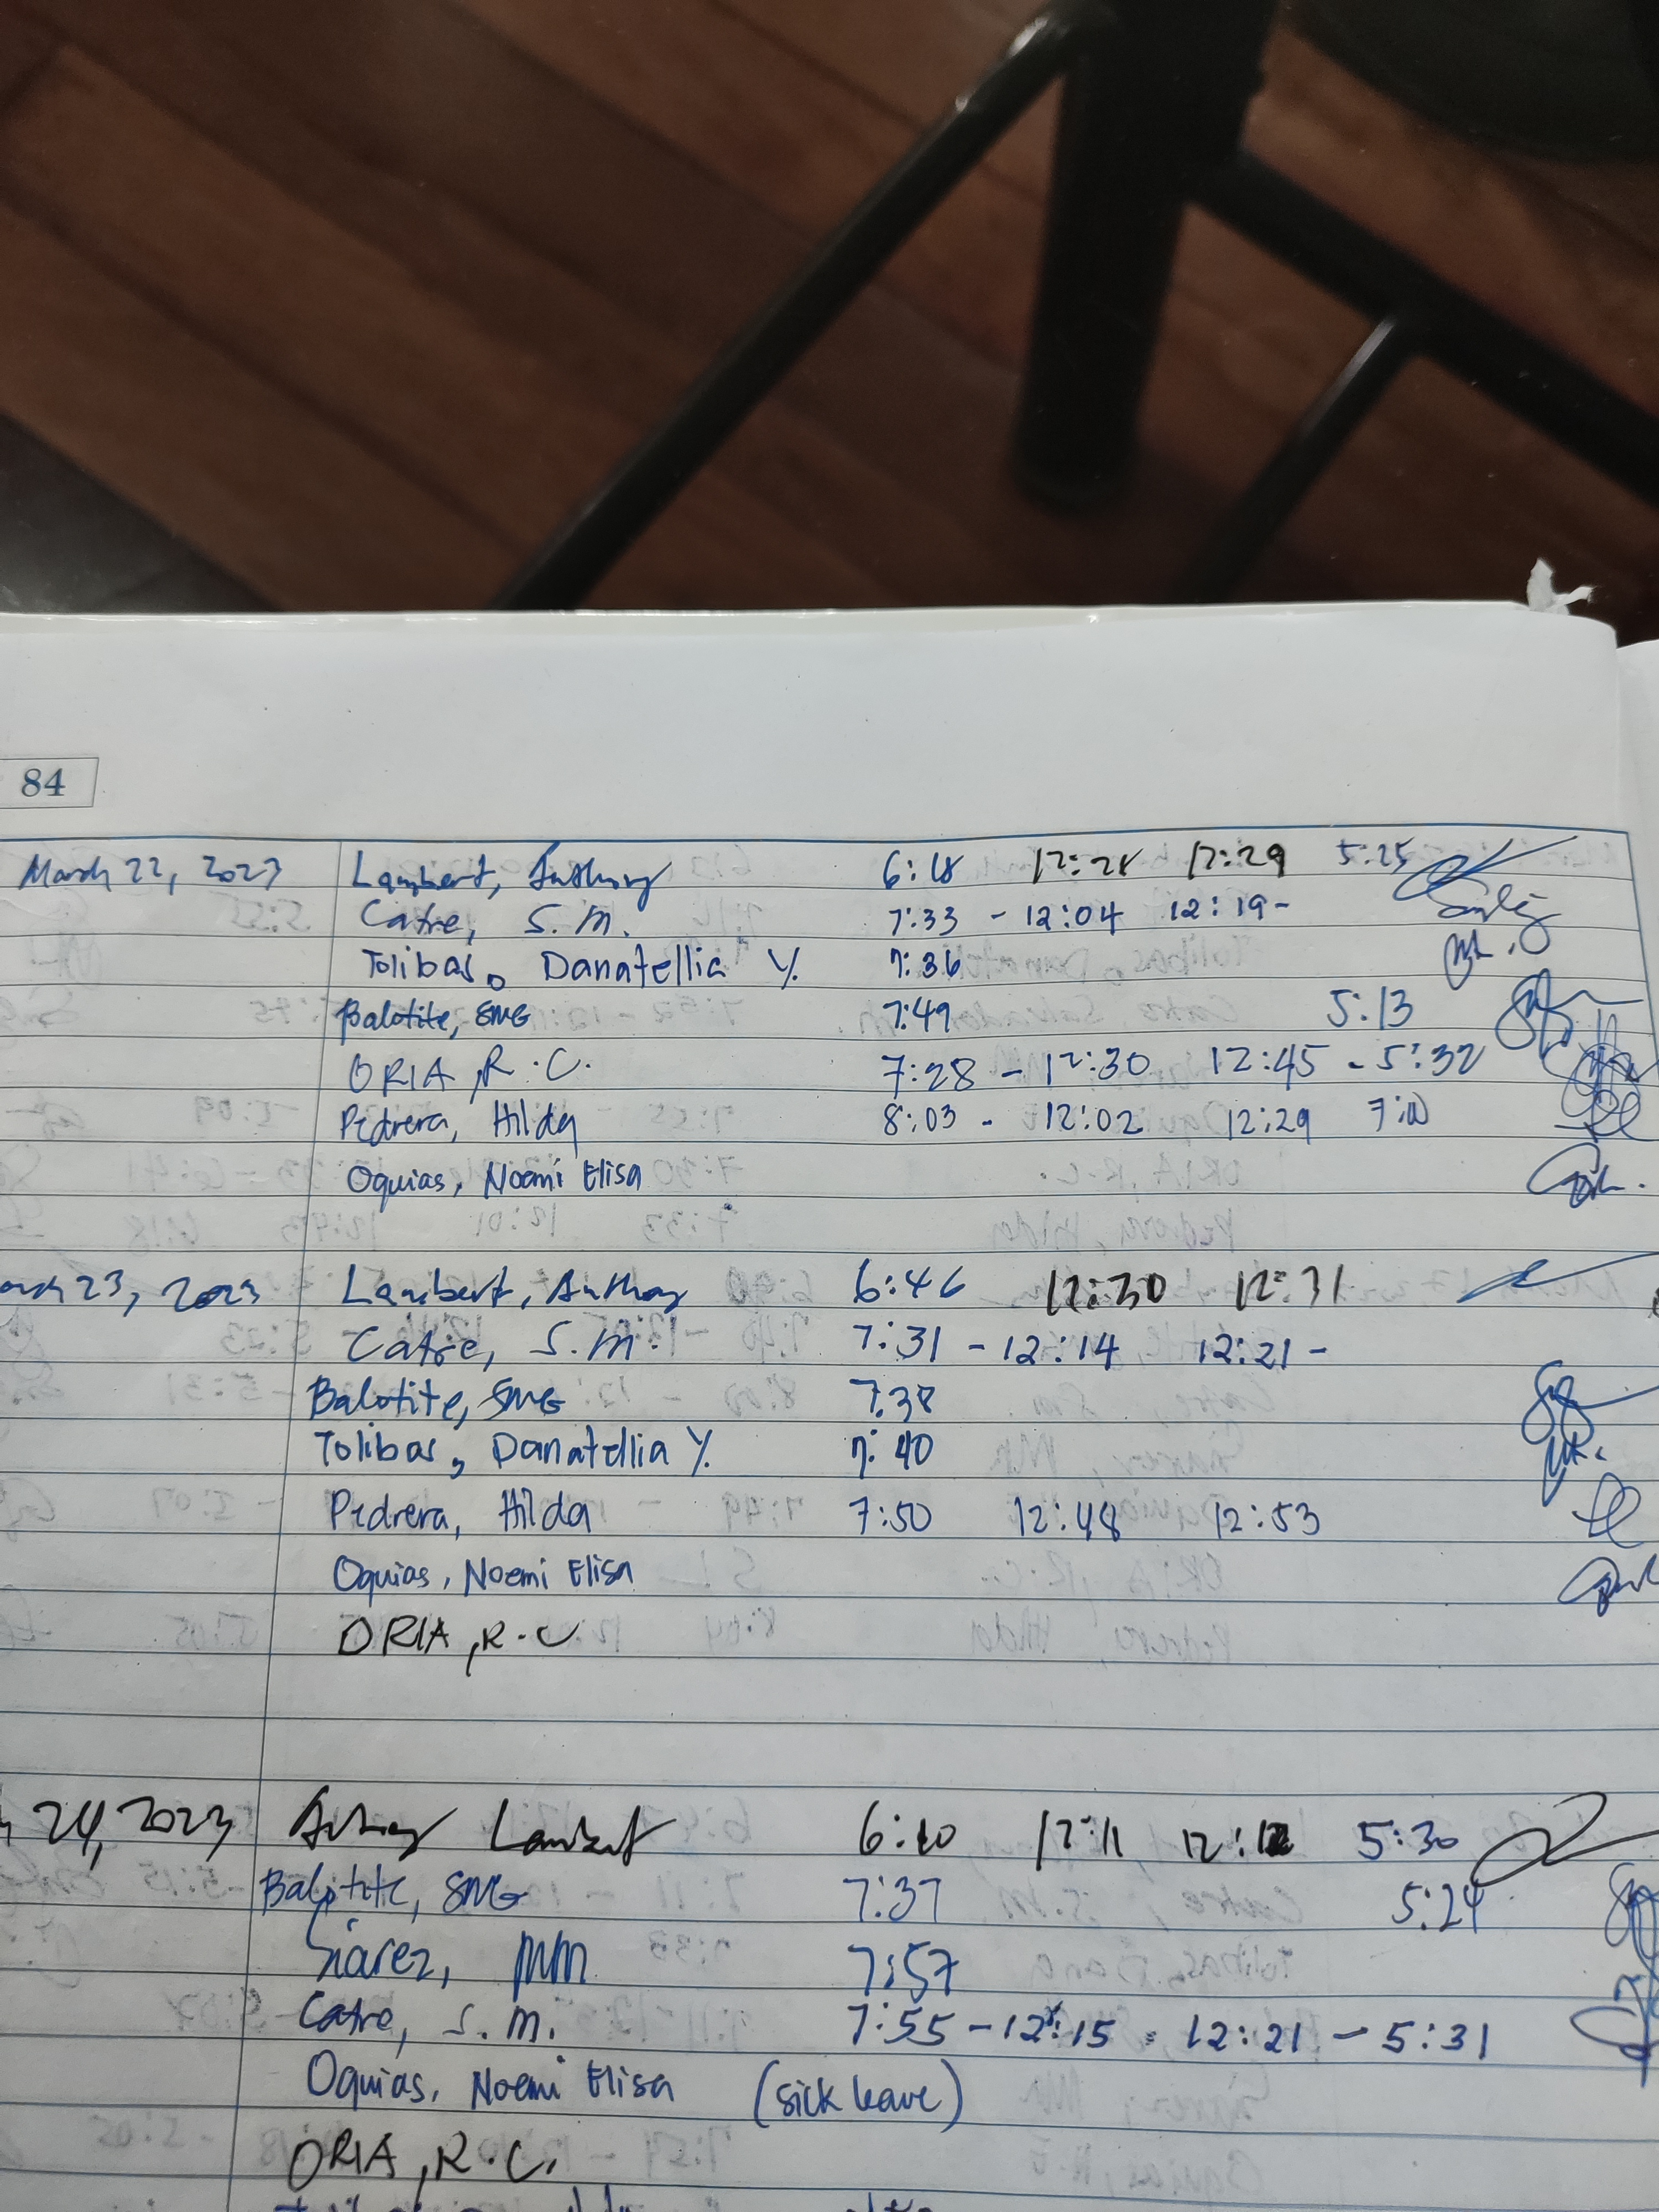 84
March 22, 2023 Lambert, Anthony 6:18 12:28 12:29 5:25
Catre, S.M. 7:33 - 12:04 12:19-
Tolibas, Danatellia Y. 7:36
Balotite, SMG 7:49 5:13
ORIA, R.C. 7:28 - 12:30 12:45 - 5:32
Pedrera, Hilda 8:03 - 12:02 12:29
Oquias, Noemi Elisa
23, 2023 Lambert, Anthony 6:46 12:30 12:31
Catre, S.M. 7:31 - 12:14 12:21 -
Balotite, SMG 7:38
Tolibas, Danatellia Y. 7:40
Pedrera, Hilda 7:50 12:48 12:53
Oquias, Noemi Elisa
ORIA, R.C
24, 2023 Anthony Lambert 6:40 12:11 12:12 5:30
Balotite, SMG 7:37 5:24
Siarez, MM 7:57
Catre, S.M. 7:55 - 12:15 - 12:21 - 5:31
Oquias, Noemi Elisa (sick leave)
ORIA, R.C.